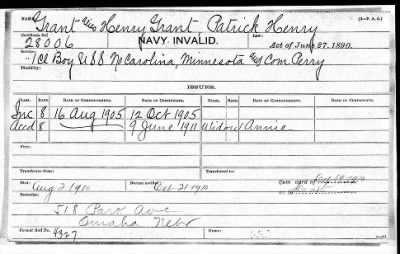 NAME: Grant alias Henry Grant Patrick Henry (3-P. A. G.)
Certificate No. 28006 NAVY INVALID. Law: Act of June 27, 1890.
Service: 1 Cl Boy USS N Carolina, Minnesota & Com. Perry
Disability:
ISSUES.
CLASS. RATE. DATE OF COMMENCEMENT. DATE OF CERTIFICATE. CLASS. RATE. DATE OF COMMENCEMENT. DATE OF CERTIFICATE.
Inc 8 16 Aug 1905 12 Oct 1905
Accd 8 9 June 1911 Widow Annie
From:
Transferred from
Died: Aug 2 1910 Bureau notified: Oct 21 1910
Remarks:
518 Park Ave
Omaha Nebr
Former Roll No. 4327 Home: